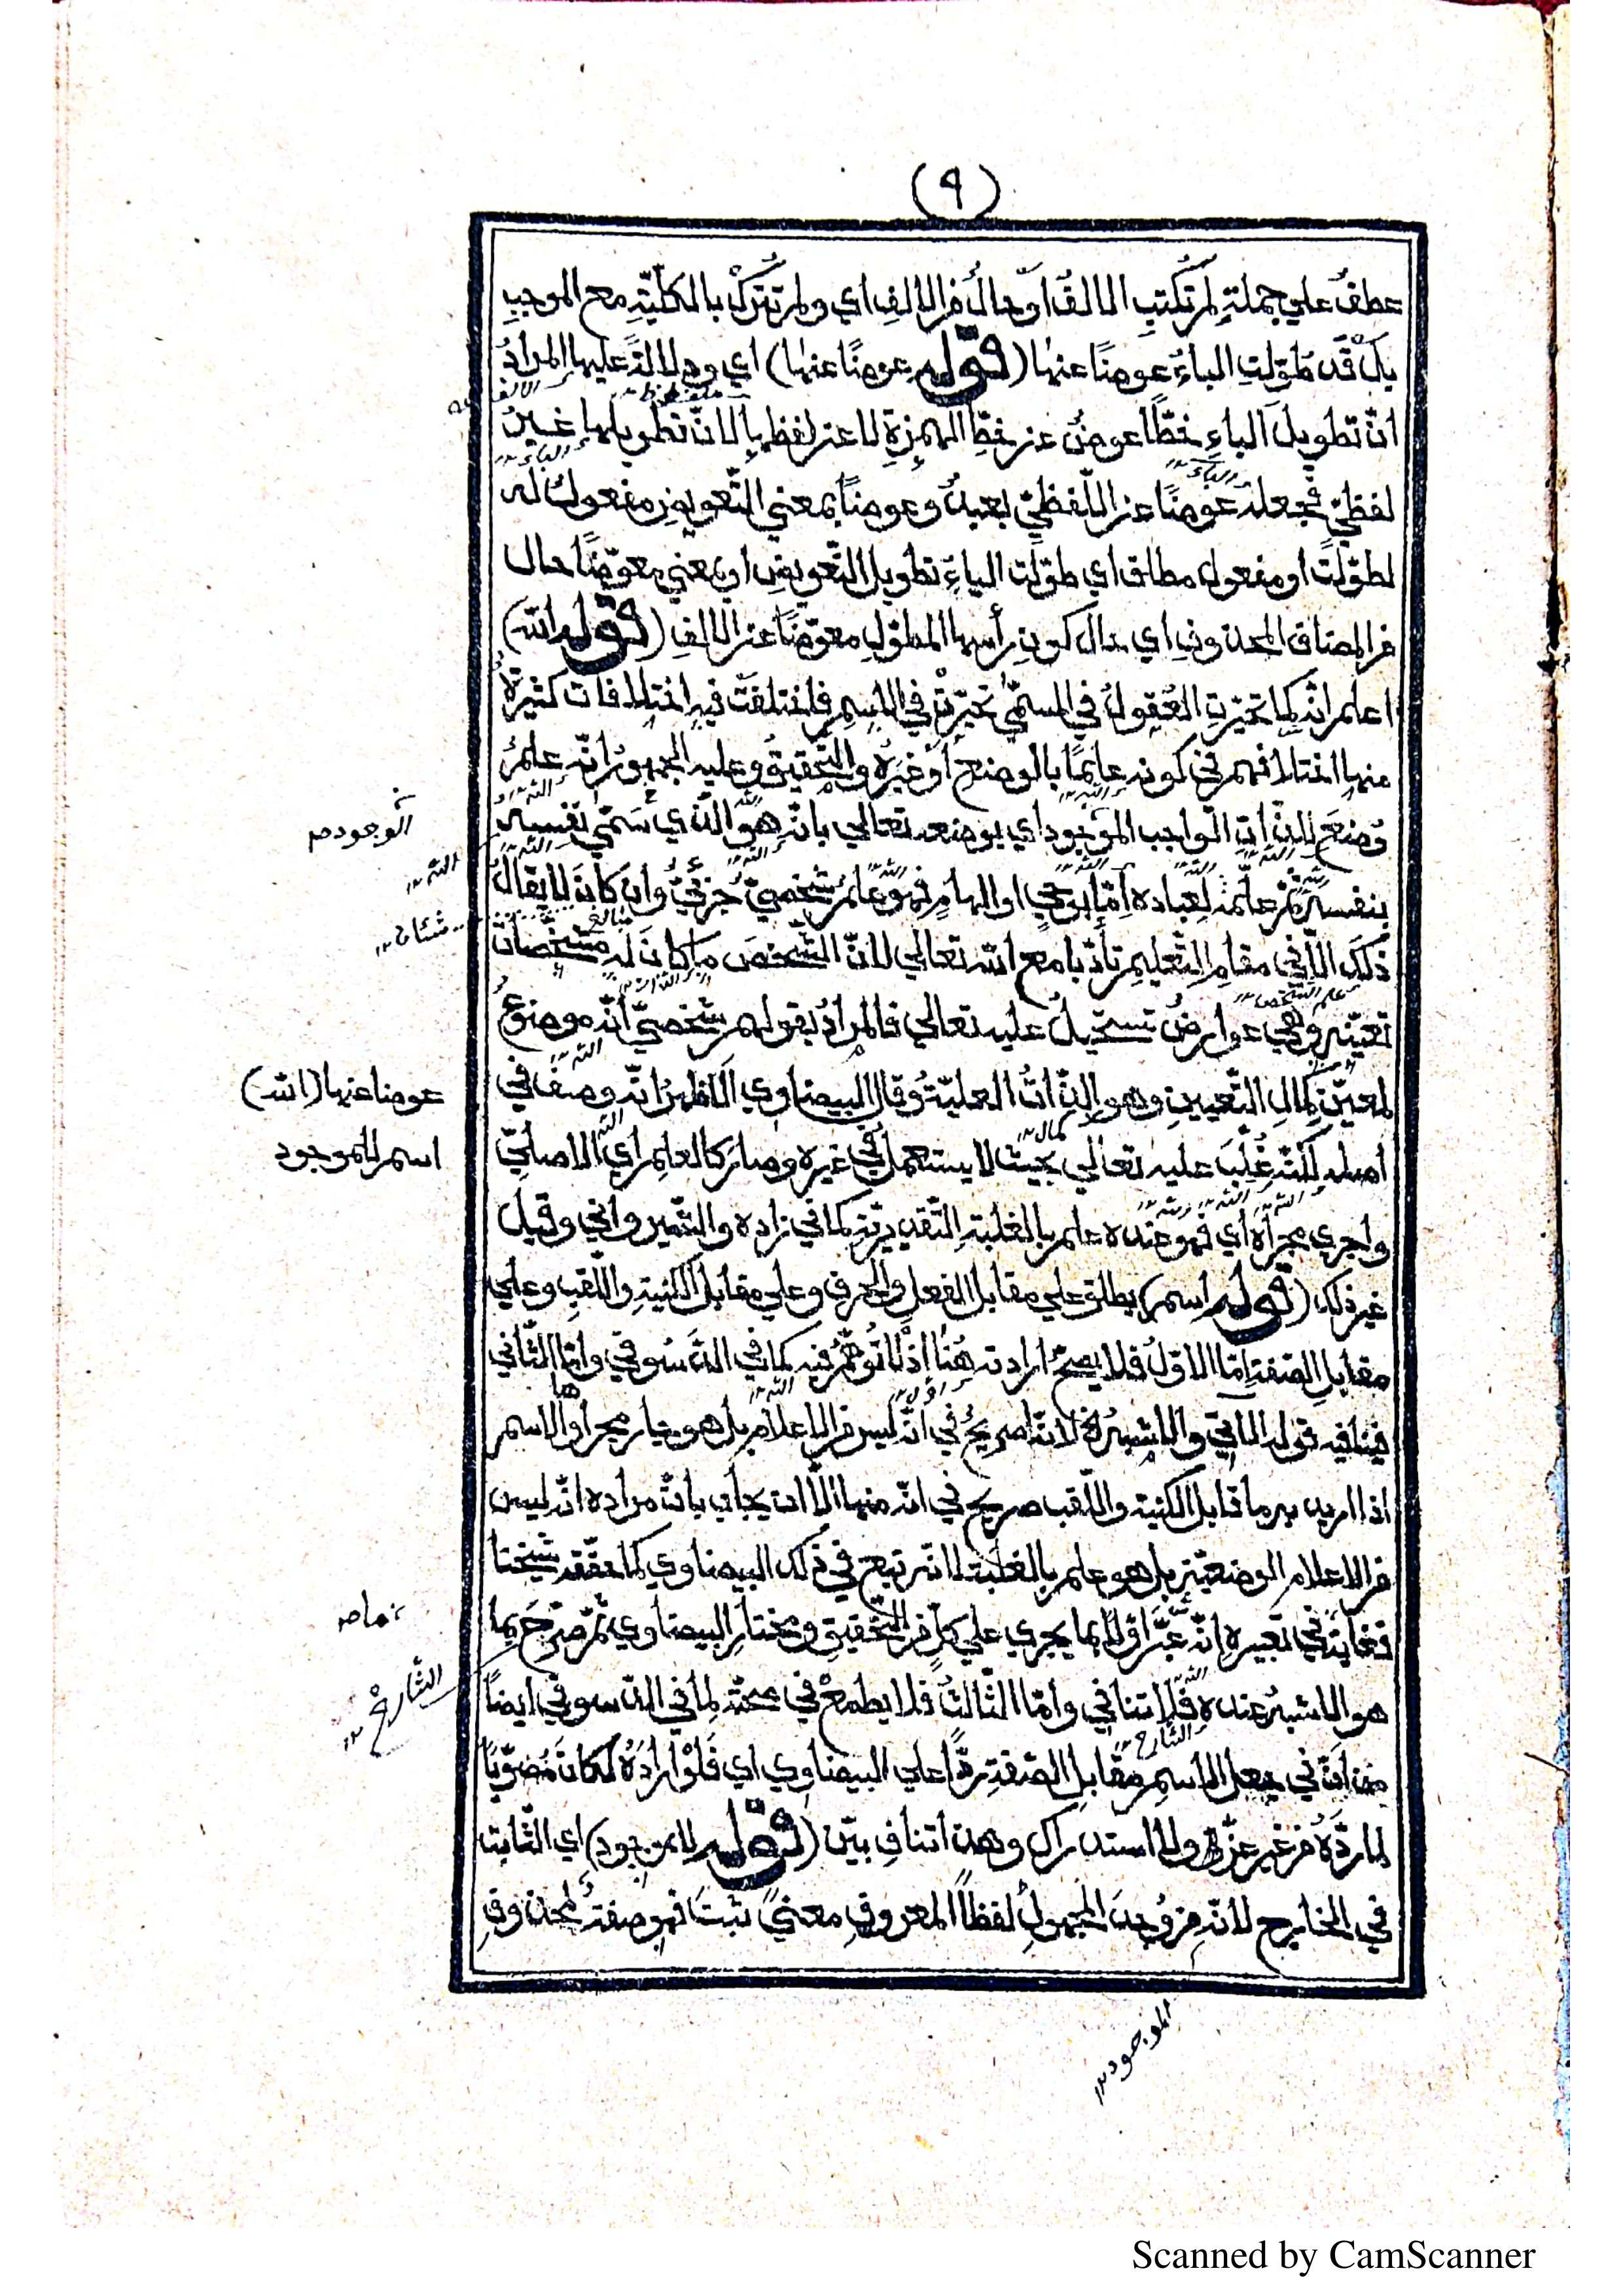 (٩)
عطفٌ علي جملةِ لم تُكتبِ الالفُ او حالٌ من الالفِ اي ولم تُتركْ بالكلّيّةِ مع الموجبِ
بل قد طُوّلتِ الباءُ عوضًا عنها (قوله عوضًا عنها) اي ودلالةً عليها المرادُ
انّ تطويلَ الباءِ خطًّا عوضٌ عن خطِّ الهمزةِ لا عن لفظها لانّ تطويلها غيرُ
لفظيّ فجعله عوضًا عن اللّفظيّ بعيدٌ وعوضًا بمعني التّعويضِ مفعولٌ له
لطوّلت او مفعول مطلق اي طوّلت الباءُ تطويل التّعويض او بمعني معوّضًا حال
من المضاف المحذوفِ اي حال كونِ رأسها المطوّلِ معوّضًا عن الالفِ (قوله الله)
اعلم انّه كما تحيّرتِ العُقولُ في المسمّي تحيّرتْ في الاسمِ فاختلفتْ فيه اختلافات كثيرةً
منها اختلافهم في كونه علَمًا بالوضعِ او غيرُه والتّحقيقُ وعليه الجمهورُ انّه علمٌ
وُضعَ للذّاتِ الواجب الموجود اي بوضعه تعالي بانّه هو الّذي سَمّي نفسَه
بنفسه ثمّ علّمه لعباده امّا بوحي او الهامٍ فهو علمٌ شخصيٌّ جزئيٌّ وان كانَ لا يقالُ
ذلك الاّ في مقامِ التّعليمِ تأدّبا مع الله تعالي لانّ الشّخصَ ما كانَ له مشخّصاتٌ
تعيّنه وهي عوارضُ تستحيلُ عليه تعالي فالمرادُ بقولهم شخصيّ انّه موضوعٌ
لمعيّنٍ كمالِ التّعيينِ وهو الذّاتُ العليّةُ وقال البيضاوي الاظهرُ انّه وصفٌ في
اصله لكنّه غُلّبَ عليه تعالي بحيث لا يستعملُ في غيره وصار كالعلم اي الاصليّ
واجري مجراه اي فهو عنده علم بالغلبةِ التّقديريّةِ كما في زاده والشّيرواني وقيل
غير ذلك (قوله اسم) يطلق علي مقابل الفعلِ والحرفِ وعلي مقابل الكنيةِ واللّقبِ وعلي
مقابلِ الصّفةِ امّا الاوّلُ فلا يصحّ ارادته هُنا اذ لا توهّمُ فيه كما في الدّسُوقي وامّا الثّاني
فينافيه قوله الآتي والاشبهُ الخ لانّه صريحٌ في انّه ليس من الاعلام بل هو جار مجراها والاسم
اذا اريد به ما قابل الكنية واللّقب صريح في انّه منها الاّ ان يجاب بانّ مراده انّه ليس
من الاعلام الوضعيّة بل هو علم بالغلبة لانّه تبع في ذلك البيضاوي كما حقّقه شيخنا
فغايةُ في تعبيره انّه عبّر اوّلا بما يجري علي كلّ من التّحقيقِ ومختارِ البيضاوي ثمّ صرّحَ بما
هو الاشبهُ عنده فلا تنافي وامّا الثّالثُ فلا يطمعْ في صحّته لما في الدّسوقي ايضاً
من انّ في جعل الاسمِ مقابلَ الصّفةِ ردًّا علي البيضاوي اي فَلَوْ ارادَهُ لكانَ مُصوّبًا
لما ردّهُ من غير عزْوٍ ولا استدراك وهذا تنافٍ بيّن (قوله للموجود) اي الثّابت
في الخارج لانّه من وُجدَ المجهولُ لفظاً المعروفِ معنيً ثبتَ فهو صفةٌ لمحذوفِ
الوجود صح
الله ١٢
عوضا عنها (الله)
اسم للموجود
الشّارح ١٢
الموجود ١٢
Scanned by CamScanner